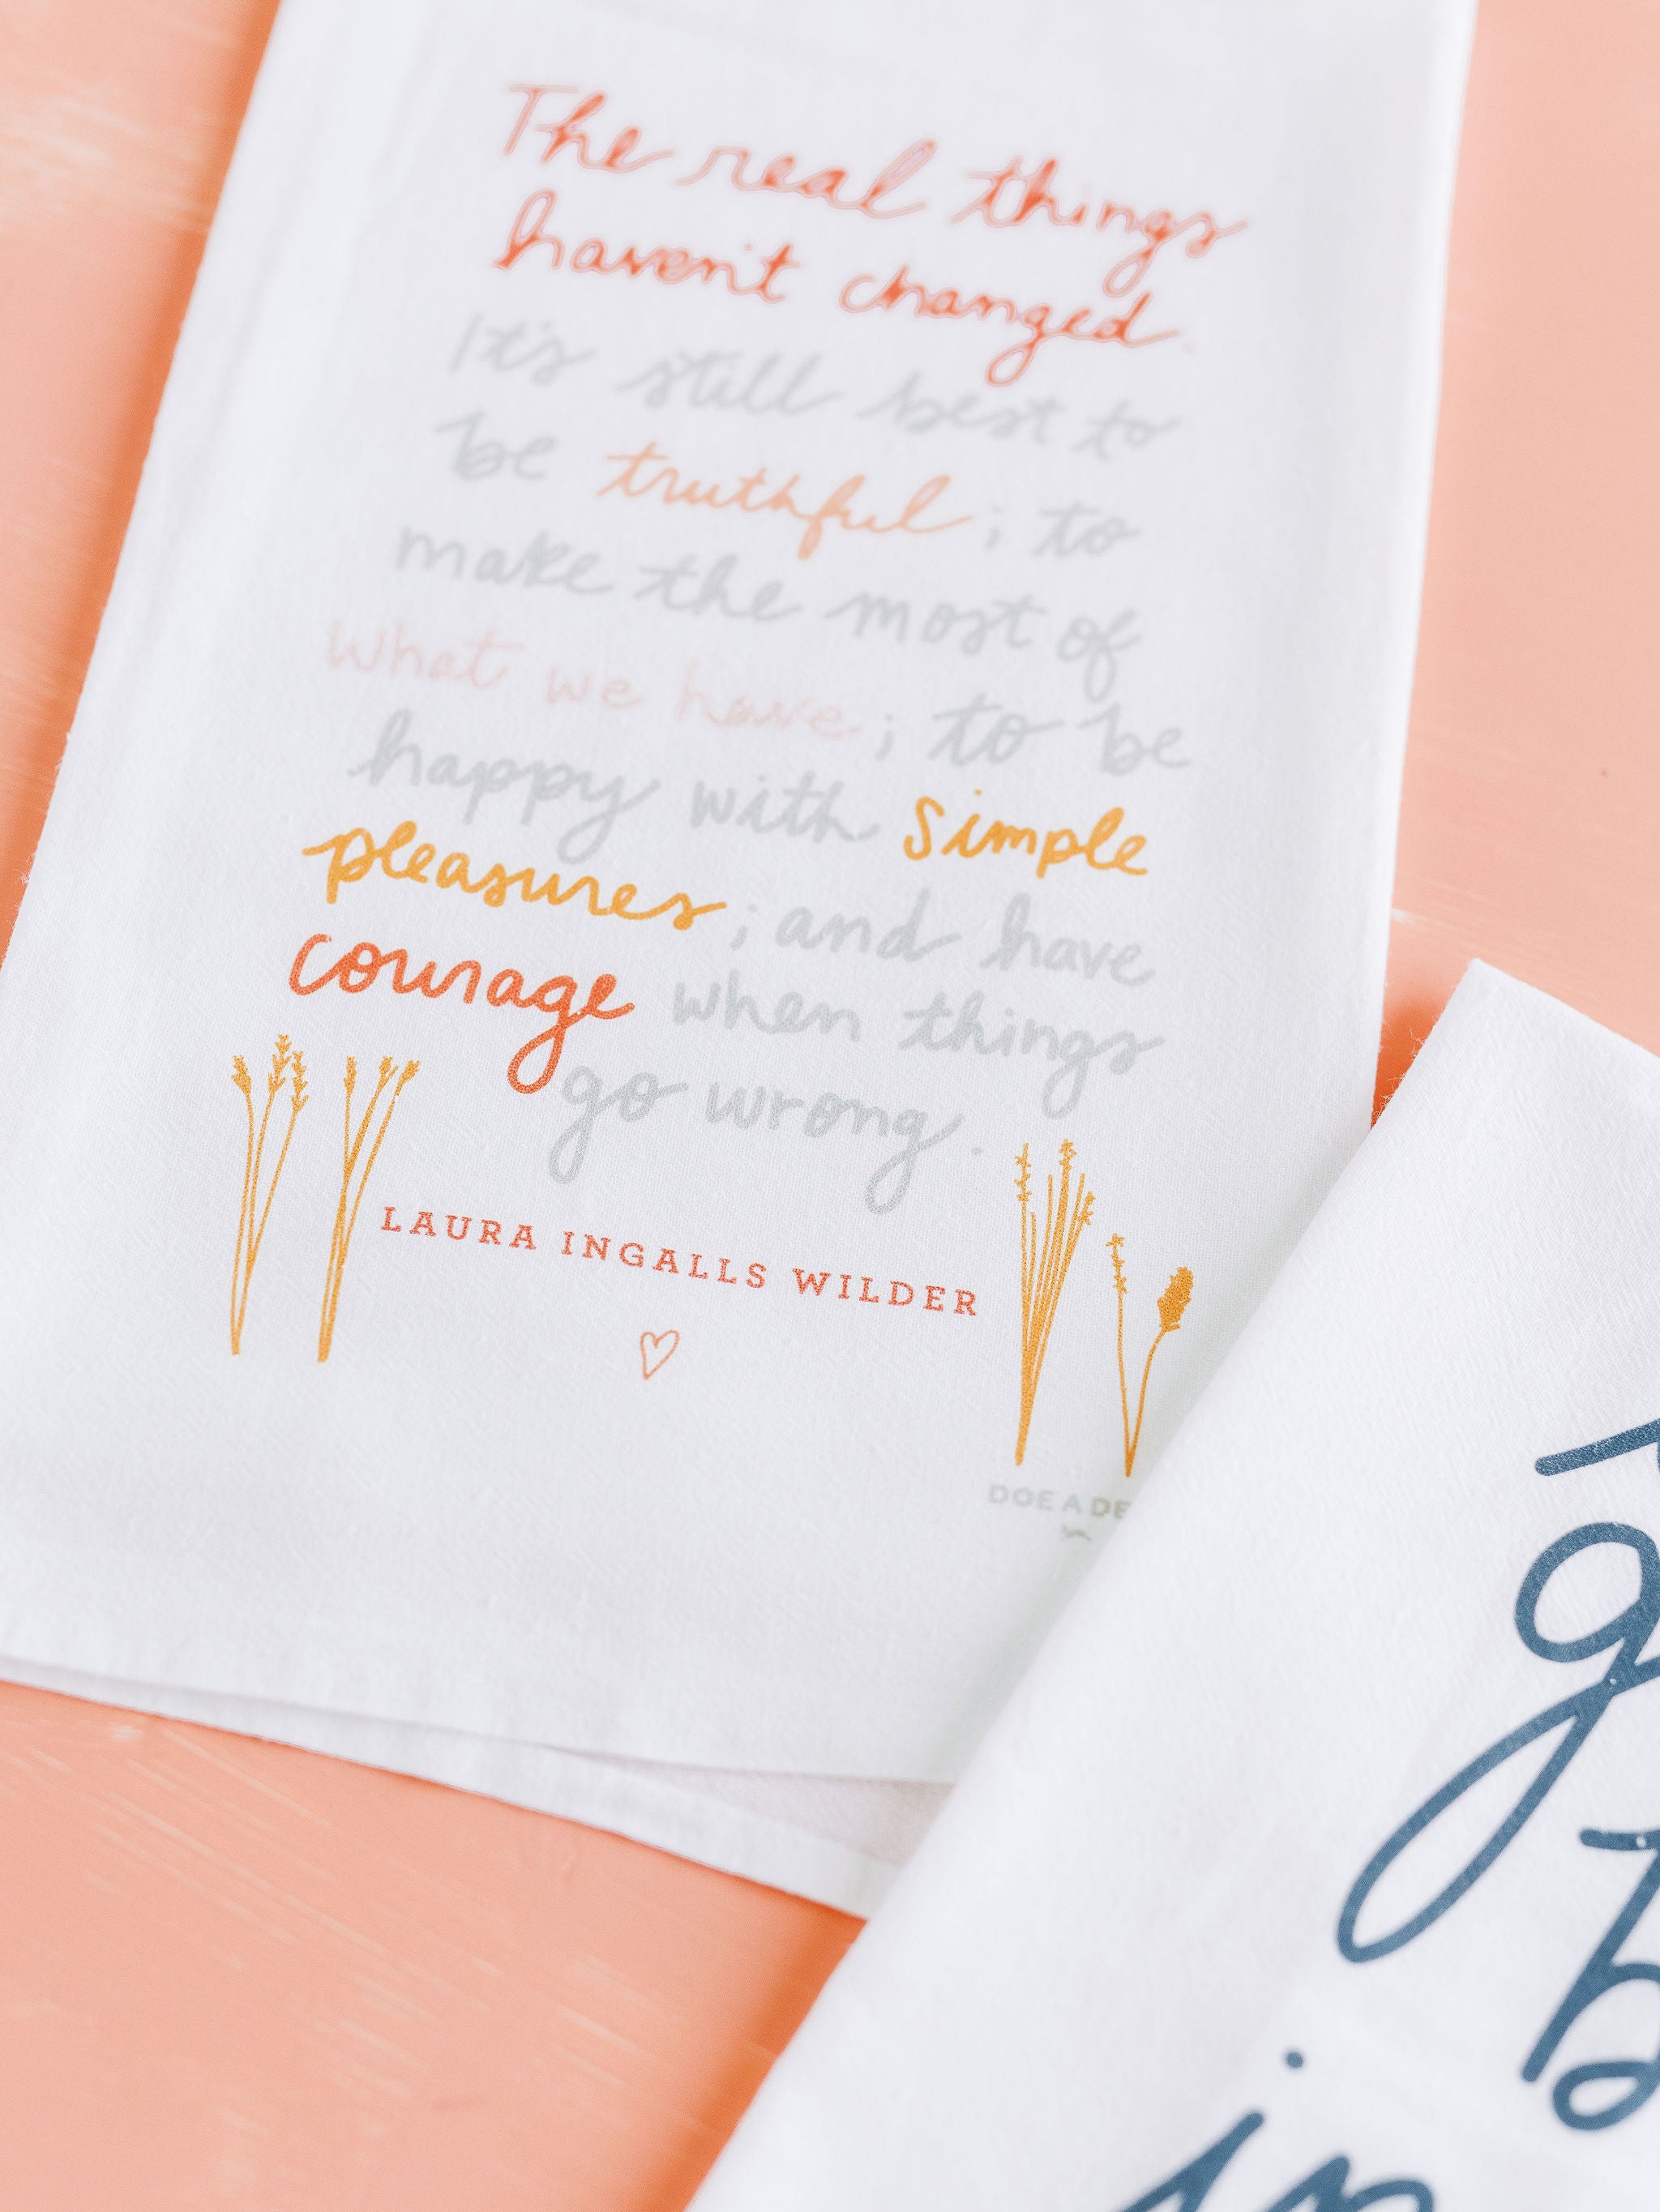 The real things
haven't changed.
It's still best to
be truthful; to
make the most of
what we have; to be
happy with simple
pleasures; and have
courage when things
go wrong.
LAURA INGALLS WILDER
DOE A DE
g
b
in